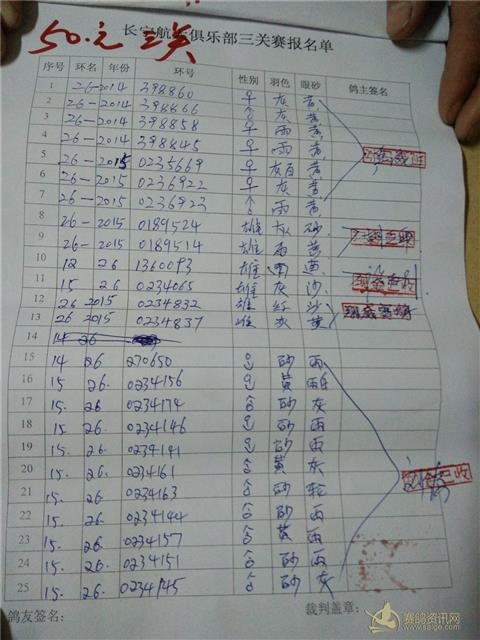 50.元 三关
长宇航 俱乐部三关赛报名单
序号 环名 年份 环号 性别 羽色 眼砂 鸽主签名
1 26-2014 398860 ♀ 灰 黄
2 26-2014 398866 ♂ 灰 黄
3 26-2014 398858 ♀ 雨 黄
4 26-2014 398845 ♀ 雨 黄
5 26-2015 0235669 ♀ 灰白 黄
6 26-2015 0236922 ♀ 灰 黄
7 26-2015 0236923 雨 黄
8 26-2015 0189524 雄 灰 砂
9 26-2015 0189514 雄 雨 黄
10 12 26 1360093 雄 雨 黄
11 15 26 0234065 雄 灰 沙
12 26 2015 0234832 雄 红 沙
13 26 2015 0234837 雄 灰 黄
14 14 26
15 14 26 270650 砂 雨
16 15. 26. 0234156 黄
17 15. 26. 0234174 砂 灰
18 15. 26. 0234146 砂 雨
19 15. 26. 砂 雨
20 15. 26. 0234161 黄 灰
21 15. 26. 0234163 砂 轮
22 15. 26. 0234144 砂 雨
23 15. 26. 0234157 黄 雨
24 15. 26. 0234151 砂 雨
25 15. 26. 0234145 砂 灰
鸽友签名: 裁判盖章:
赛鸽资讯网
www.saige.com